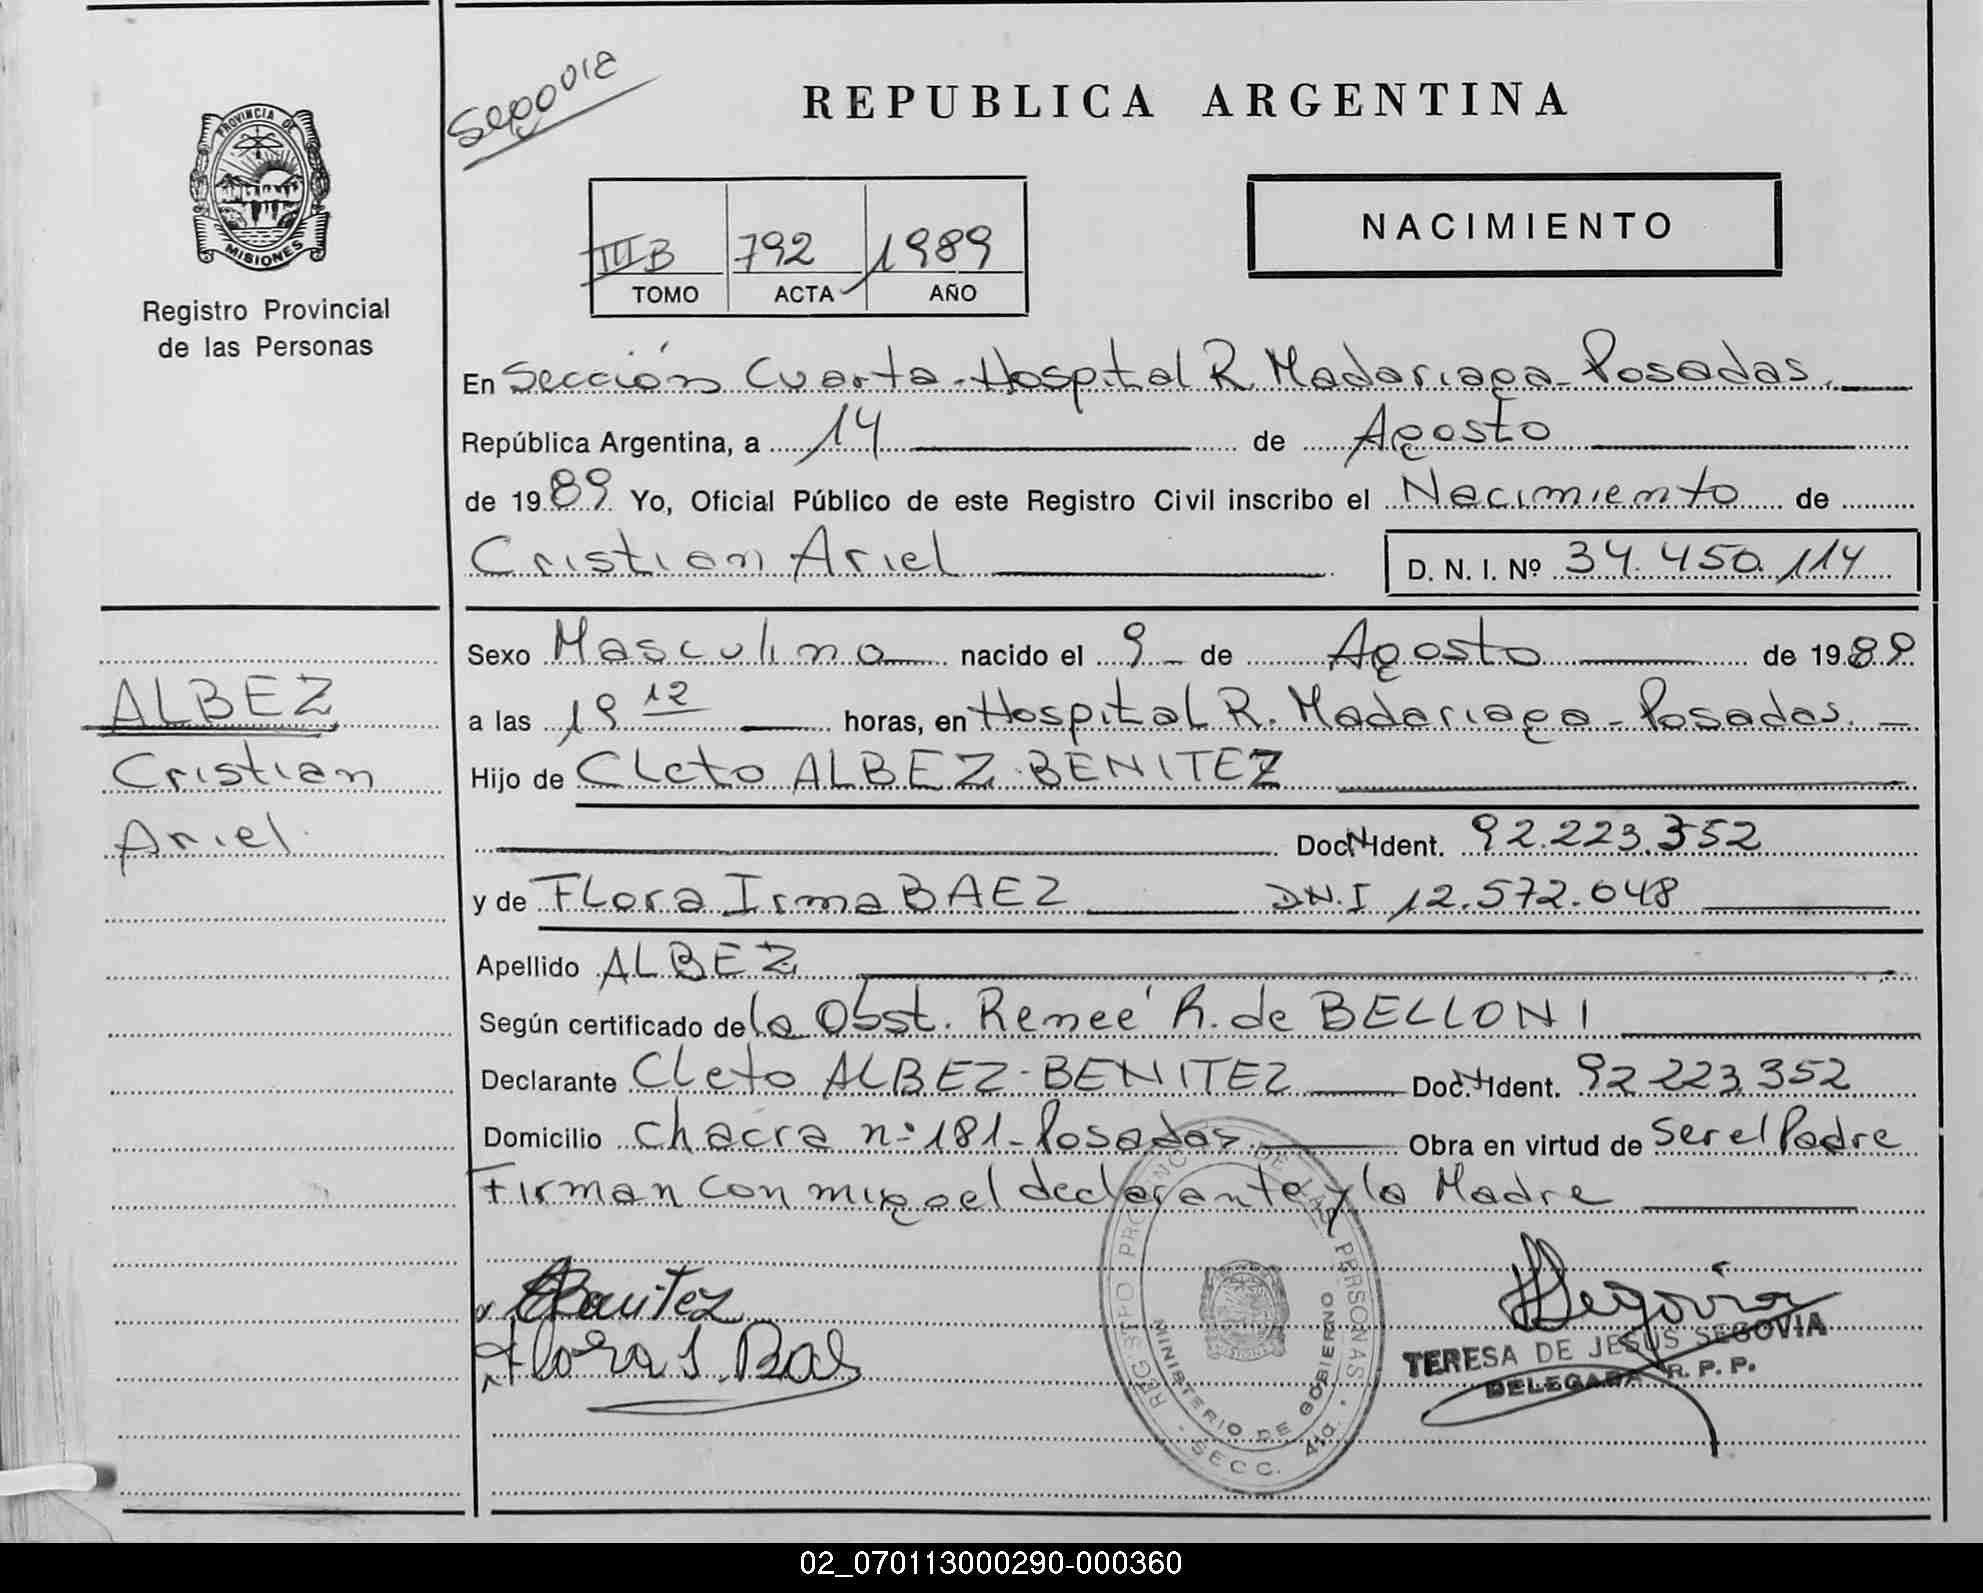 Segovia
REPUBLICA ARGENTINA
PROVINCIA DE
MISIONES
Registro Provincial
de las Personas
NACIMIENTO
III B 792 1989
TOMO ACTA AÑO
En Sección Cuarta - Hospital R. Madariaga - Posadas.
República Argentina, a 14 de Agosto
de 1989 Yo, Oficial Público de este Registro Civil inscribo el Nacimiento de
Cristian Ariel D. N. I. Nº 34.450.114
Sexo Masculino nacido el 9 de Agosto de 1989
ALBEZ
Cristian
Ariel.
a las 19 12 horas, en Hospital R. Madariaga - Posadas.
Hijo de Cleto ALBEZ-BENITEZ
Doc. Ident. 92.223.352
y de Flora Irma BAEZ D.N.I 12.572.048
Apellido ALBEZ
Según certificado de la Obst. Reneé R. de BELLONI
Declarante Cleto ALBEZ-BENITEZ Doc. Ident. 92.223.352
Domicilio Chacra nº 181 - Posadas Obra en virtud de ser el Padre
Firman conmigo el declarante y la Madre
Benitez
Flora I. Baes
Segovia
TERESA DE JESUS SEGOVIA
DELEGADA R. P. P.
REGISTRO PROVINCIAL DE LAS PERSONAS
MINISTERIO DE GOBIERNO
SECC. 4ta.
02_070113000290-000360